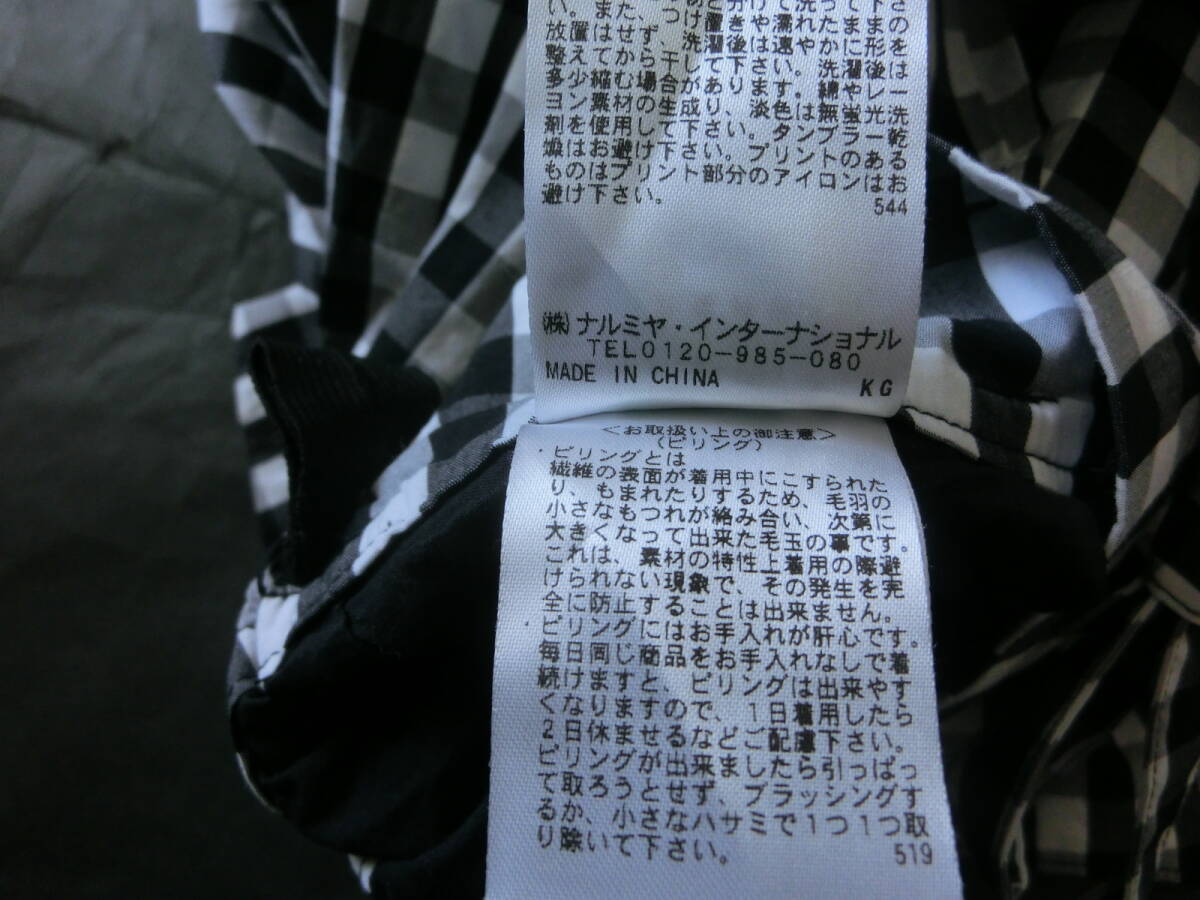 い。また、つけ置きや濡れたままの
放置はせず、洗濯後は速やかに形を
多少縮む場合があります。綿やレー
ヨン素材の生成、淡色は無蛍光洗
剤を使用して下さい。タンブラー乾
燥はお避け下さい。プリントのある
ものはプリント部分のアイロンはお
避け下さい。
544
(株)ナルミヤ・インターナショナル
TEL0120-985-080
MADE IN CHINA KG
＜お取扱い上の御注意＞
(ピリング)
・ピリングとは
繊維の表面が着用中にこすられた
り、もまれたりするため、毛羽の
小さなもつれが絡み合い、次第に
大きくなって出来た毛玉の事です。
これは、素材の特性上着用の際避
けられない現象で、その発生を完
全に防止することは出来ません。
ピリングにはお手入れが肝心です。
毎日同じ商品をお手入れなしで着
続けますと、ピリングは出来やす
くなりますので、1日着用したら
2日休ませるなどご配慮下さい。
ピリングが出来ましたら引っぱっ
て取ろうとせず、ブラッシングす
るか、小さなハサミで1つ1つ取
り除いて下さい。
519